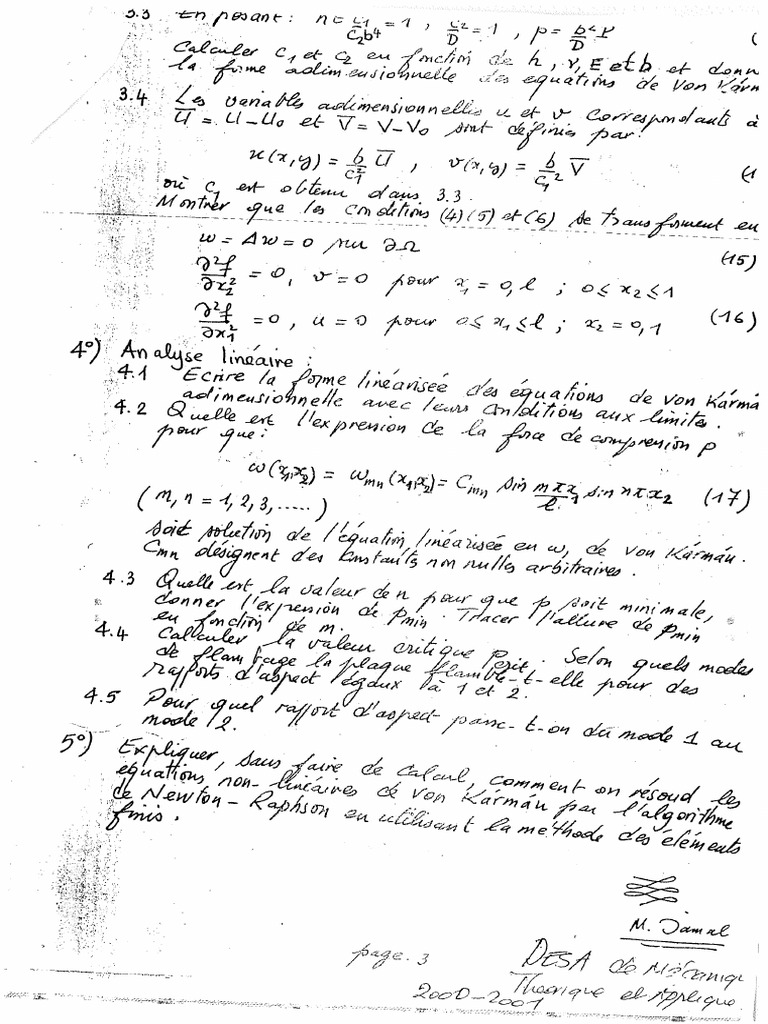 3.3 En posant : n = c1/(c2b⁴) = 1 , c2/D = 1 , p = b²P/D (
Calculer c1 et c2 en fonction de h, ν, E et b et donn
la forme adimensionnelle des equations de Von Kárm
3.4 Les variables adimensionnelles u et v correspondants à
Ū = U-U0 et V̄ = V-V0 sont définies par :
u(x,y) = b/c1² Ū , v(x,y) = b/c1² V̄ (1
où c1 est obtenu dans 3.3.
Montrer que les conditions (4) (5) et (6) se transforment en
w = Δw = 0 sur ∂Ω (15)
∂²f/∂x2² = 0, v = 0 pour x1 = 0, l ; 0 ≤ x2 ≤ 1
∂²f/∂x1² = 0, u = 0 pour 0 ≤ x1 ≤ l ; x2 = 0, 1 (16)
4°) Analyse linéaire :
4.1 Ecrire la forme linéarisée des équations de von Kármá
adimensionnelle avec leurs conditions aux limites.
4.2 Quelle est l'expression de la force de compression p
pour que :
w(x1,x2) = wmn(x1,x2) = Cmn sin mπx1/l sin nπx2 (17)
(m, n = 1, 2, 3, .....)
soit solution de l'équation linéarisée en w, de von Kármán.
Cmn désignent des constants non nulles arbitraires.
4.3 Quelle est la valeur de n pour que p soit minimale,
donner l'expression de pmin. Tracer l'allure de pmin
en fonction de m.
4.4 Calculer la valeur critique pcrit. Selon quels modes
de flambage la plaque flambe-t-elle pour des
rapports d'aspect égaux à 1 et 2.
4.5 Pour quel rapport d'aspect passe-t-on du mode 1 au
mode 2.
5°) Expliquer, sans faire de calcul, comment on résoud les
equations non-linéaires de von Kármán par l'algorithme
de Newton-Raphson en utilisant la méthode des éléments
finis.
M. Jamal
page. 3
DESA de Mécaniq
Théorique et Applique
2000-2001